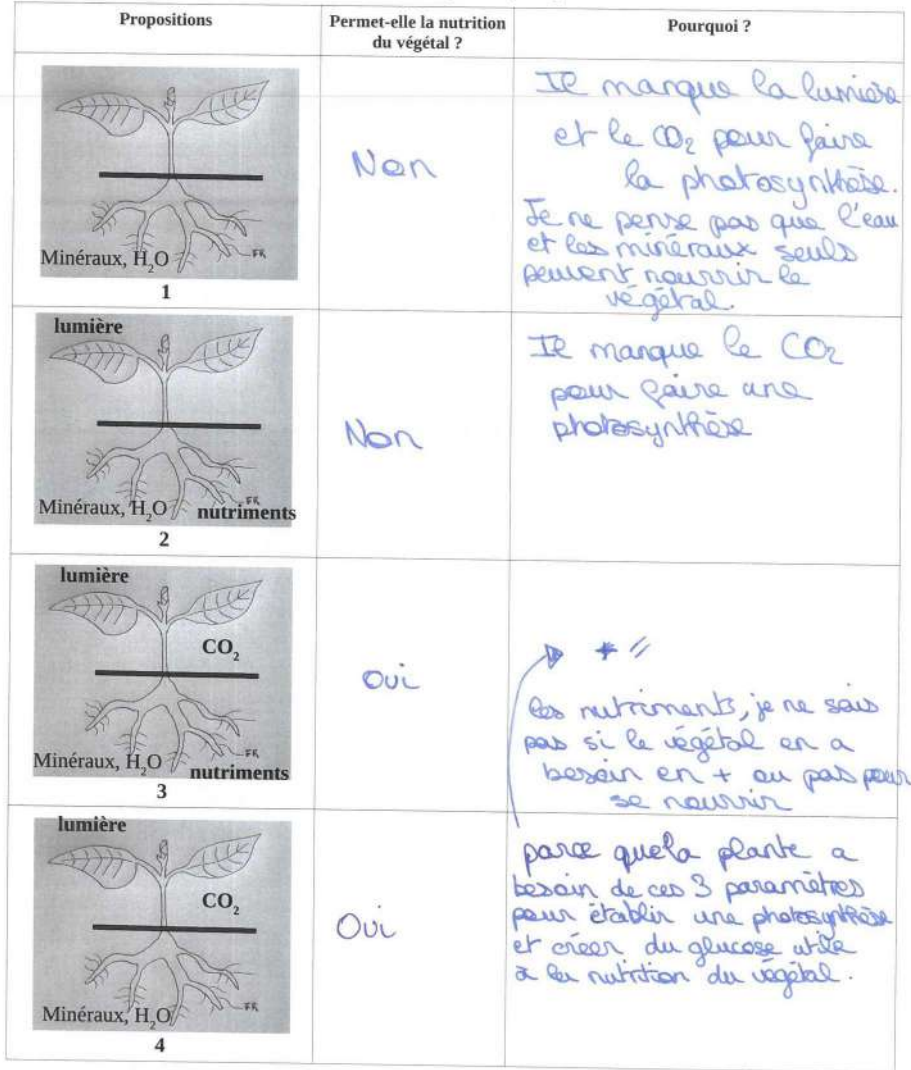 Propositions
Permet-elle la nutrition
du végétal ?
Pourquoi ?
Minéraux, H₂O
FR
1
Non
Il manque la lumière
et le CO₂ pour faire
la photosynthèse.
Je ne pense pas que l'eau
et les minéraux seuls
peuvent nourrir le
végétal.
lumière
Minéraux, H₂O
FR
nutriments
2
Non
Il manque le CO₂
pour faire une
photosynthèse
lumière
CO₂
Minéraux, H₂O
FR
nutriments
3
Oui
* //
les nutriments, je ne sais
pas si le végétal en a
besoin en + ou pas pour
se nourrir
lumière
CO₂
Minéraux, H₂O
FR
4
Oui
parce que la plante a
besoin de ces 3 paramètres
pour établir une photosynthèse
et créer du glucose utile
à la nutrition du végétal.